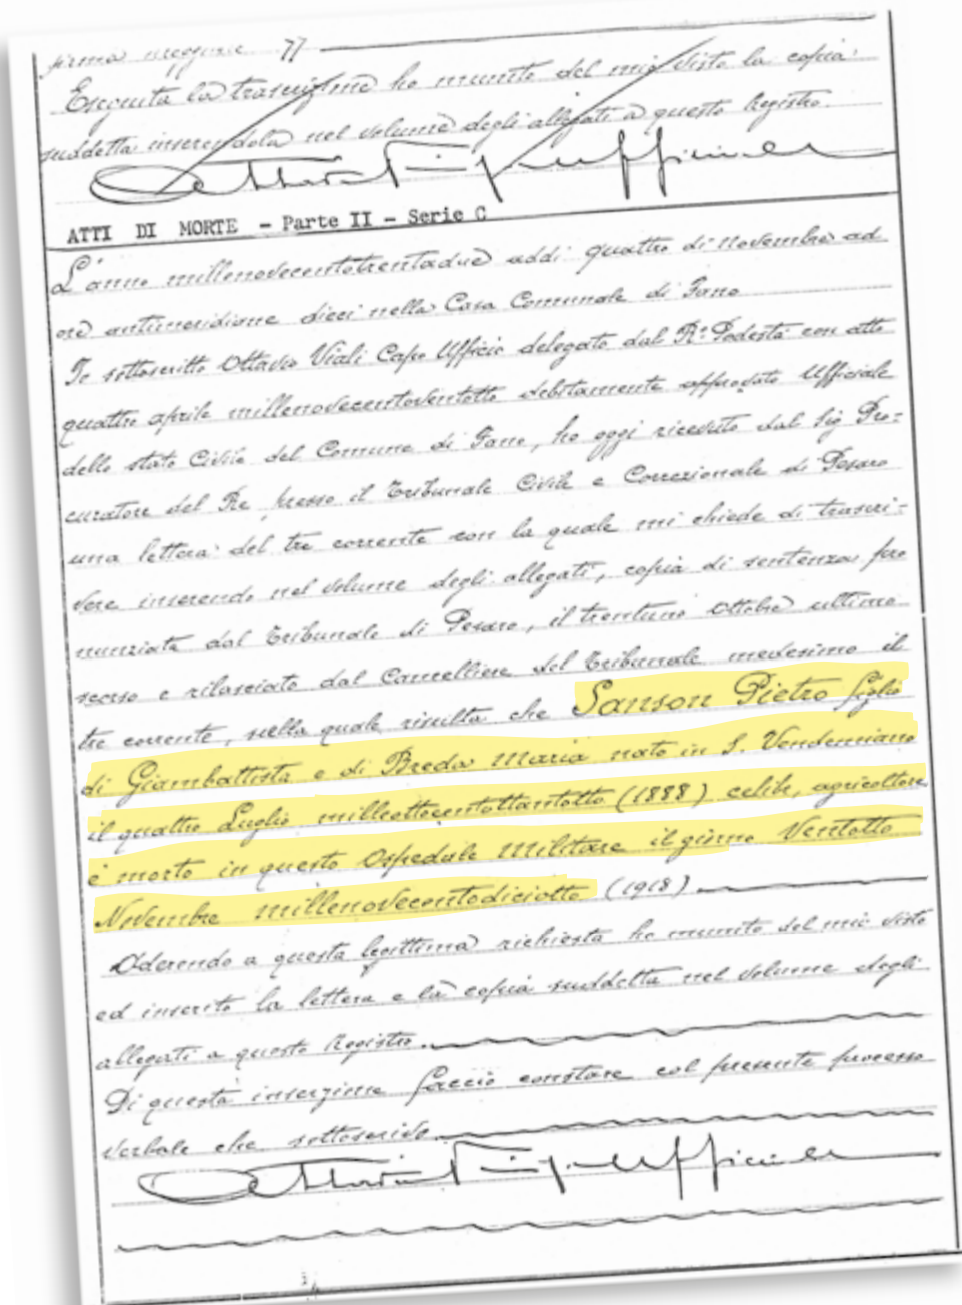 firma
Eseguita la trascrizione ho munito del mio visto la copia
suddetta inserendola nel volume degli allegati a questo Registro.
ATTI DI MORTE - Parte II - Serie C
L'anno millenovecentotrentadue addi quattro di novembre ad
ore antimeridiane dieci nella Casa Comunale di Fano
Io sottoscritto Ottavio Viali Capo Ufficio delegato dal R° Podestà con atto
quattro aprile millenovecentoventotto debitamente approvato Ufficiale
dello stato Civile del Comune di Fano, ho oggi ricevuto dal Sig Pro=
curatore del Re presso il Tribunale Civile e Correzionale di Pesaro
una lettera del tre corrente con la quale mi chiede di trascri-
vere inserendo nel volume degli allegati, copia di sentenza pro
nunziata dal Tribunale di Pesaro, il trentuno Ottobre ultimo
scorso e rilasciata dal Cancelliere del Tribunale medesimo il
tre corrente, nella quale risulta che Sanson Pietro figlio
di Giambattista e di Breda Maria nato in S. Vendemiano
il quattro Luglio milleottocentottantotto (1888) celibe, agricoltore
è morto in questo Ospedale Militare il giorno Ventotto
Novembre millenovecentodiciotto (1918)
Aderendo a questa legittima richiesta ho munito del mio visto
ed inserito la lettera e la copia suddetta nel volume degli
allegati a questo Registro.
Di questa inserzione faccio constare col presente processo
verbale che sottoscrivo.